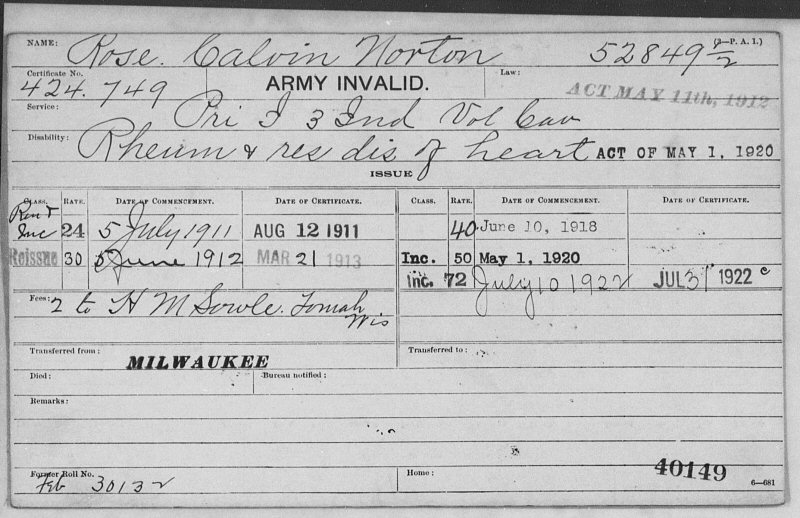 (3—P. A. I.)
NAME: Rose. Calvin Norton 52849½
Certificate No. 424.749 ARMY INVALID. Law: ACT MAY 11th, 1912
Service: Pri I 3 Ind Vol Cav
Disability: Rheum & res dis of heart ACT OF MAY 1, 1920
ISSUE
CLASS. RATE. DATE OF COMMENCEMENT. DATE OF CERTIFICATE. CLASS. RATE. DATE OF COMMENCEMENT. DATE OF CERTIFICATE.
Ren &
Inc 24 5 July 1911 AUG 12 1911 40 June 10, 1918
Reissue 30 5 June 1912 MAR 21 1913 Inc. 50 May 1, 1920
Inc. 72 July 10 1922 JUL 31 1922 c
Fees: 2 to H M Sowle. Tomah
Wis
Transferred from: MILWAUKEE Transferred to:
Died: Bureau notified:
Remarks:
Former Roll No. Feb 30132 Home: 40149
6—681